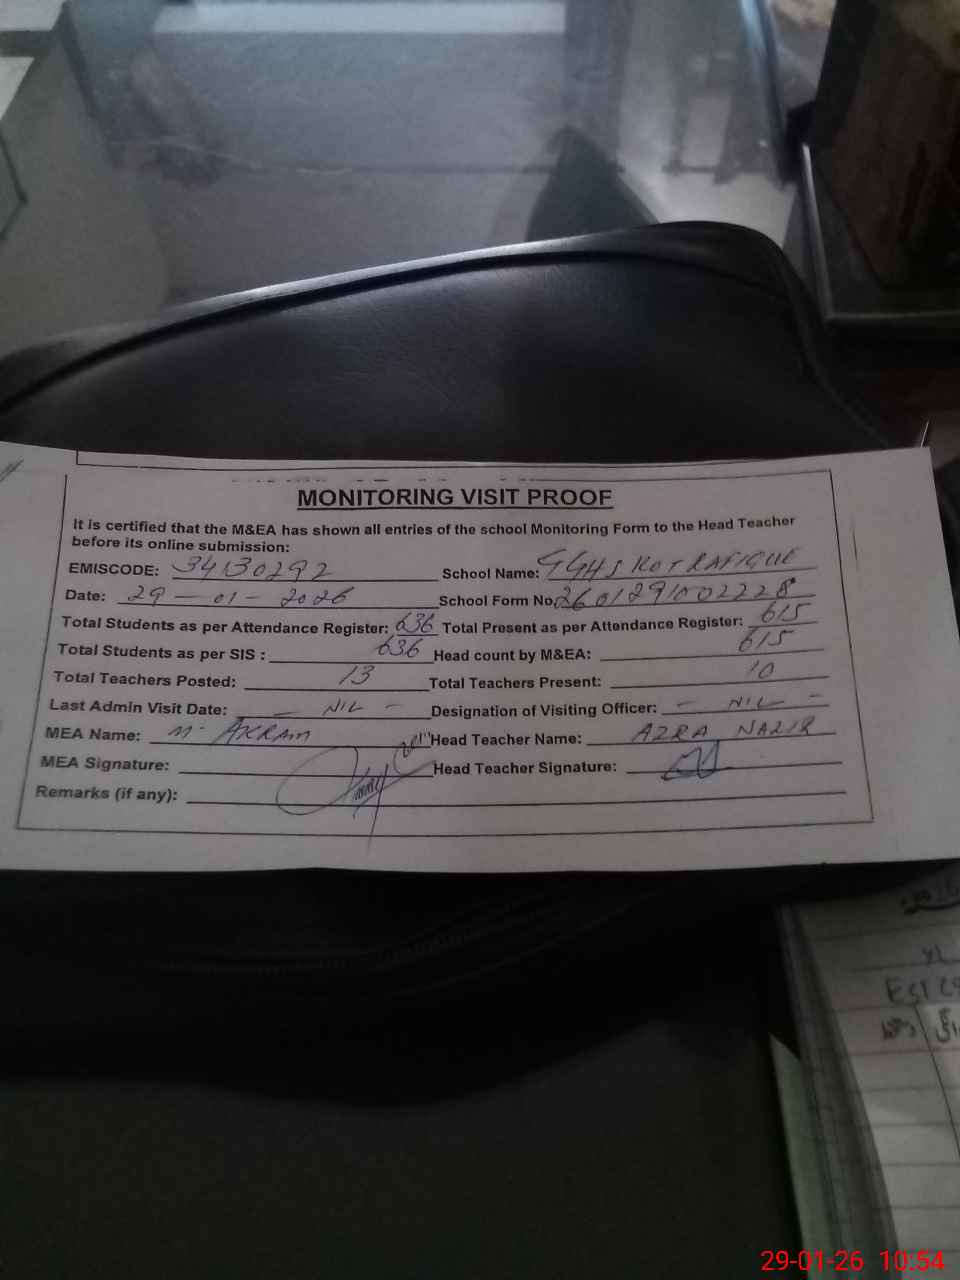 MONITORING VISIT PROOF
It is certified that the M&EA has shown all entries of the school Monitoring Form to the Head Teacher
before its online submission:
EMISCODE: 34130292 School Name: GGHS KOT RAFIQUE
Date: 29-01-2026 School Form No.
Total Students as per Attendance Register: 636 Total Present as per Attendance Register: 615
Total Students as per SIS : 636 Head count by M&EA: 615
Total Teachers Posted: 13 Total Teachers Present: 10
Last Admin Visit Date: - NIL - Designation of Visiting Officer: - NIL -
MEA Name: M. AKRAM Head Teacher Name: AZRA NAZIR
MEA Signature: Head Teacher Signature:
Remarks (if any):
29-01-26 10:54